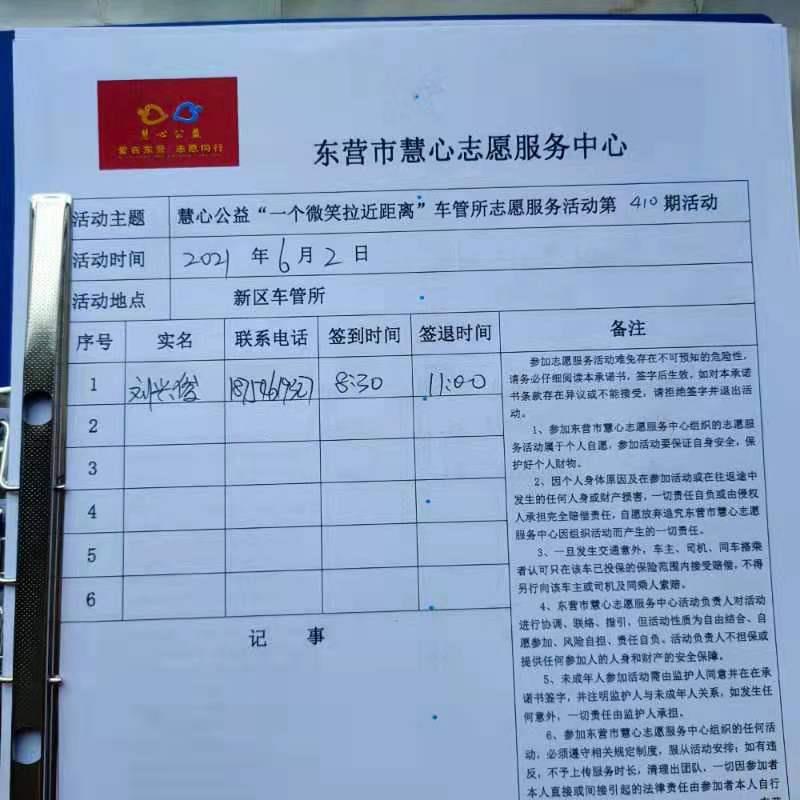 慧心公益
爱在东营 志愿同行
东营市慧心志愿服务中心
活动主题 慧心公益“一个微笑拉近距离”车管所志愿服务活动第 410 期活动
活动时间 2021 年 6 月 2 日
活动地点 新区车管所
序号 实名 联系电话 签到时间 签退时间 备注
1 刘兴俊 8:30 11:00
2
3
4
5
6
记 事
参加志愿服务活动难免存在不可预知的危险性，
请务必仔细阅读本承诺书，签字后生效，如对本承诺
书条款存在异议或不能接受，请拒绝签字并退出活
动。
1、参加东营市慧心志愿服务中心组织的志愿服
务活动属于个人自愿，参加活动要保证自身安全，保
护好个人财物。
2、因个人身体原因及在参加活动或在往返途中
发生的任何人身或财产损害，一切责任自负或由侵权
人承担完全赔偿责任，自愿放弃追究东营市慧心志愿
服务中心因组织活动而产生的一切责任。
3、一旦发生交通意外，车主、司机、同车搭乘
者认可只在该车已投保的保险范围内接受赔偿，不得
另行向该车主或司机及同乘人索赔。
4、东营市慧心志愿服务中心活动负责人对活动
进行协调、联络、指引，但活动性质为自由结合、自
愿参加、风险自担、责任自负、活动负责人不担保或
提供任何参加人的人身和财产的安全保障。
5、未成年人参加活动需由监护人同意并在在承
诺书签字，并注明监护人与未成年人关系，如发生任
何意外，一切责任由监护人承担。
6、参加东营市慧心志愿服务中心组织的任何活
动，必须遵守相关规定制度，服从活动安排；如有违
反，不予上传服务时长，清理出团队，一切因参加者
本人直接或间接引起的法律责任由参加者本人自行